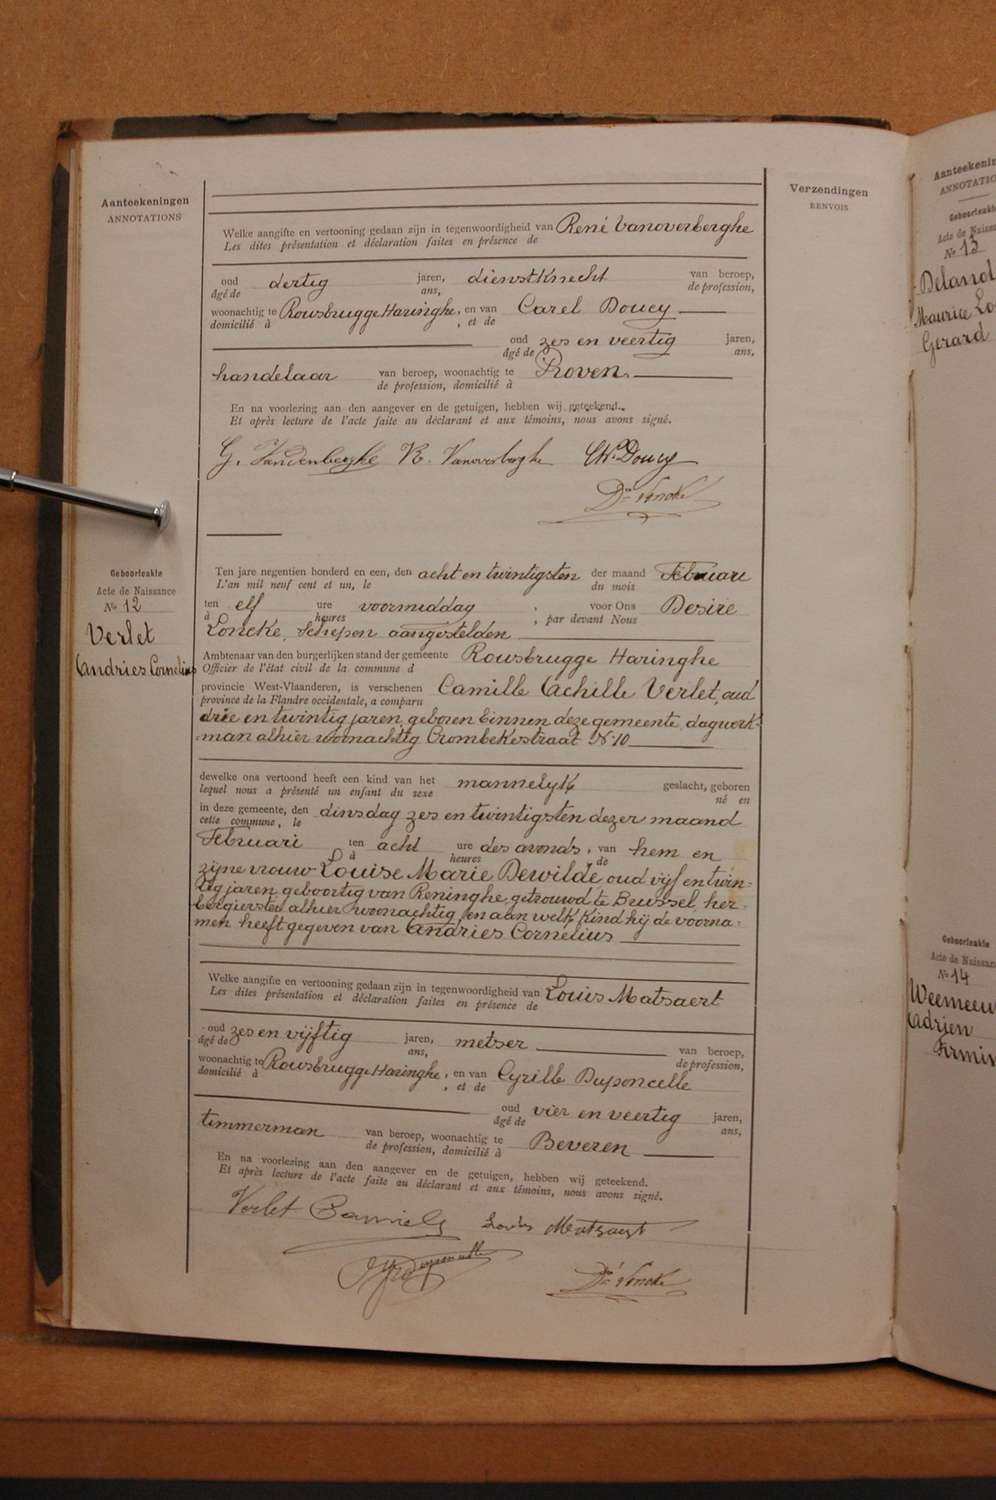 Aanteekeningen
ANNOTATIONS
Verzendingen
RENVOIS
Welke aangifte en vertooning gedaan zijn in tegenwoordigheid van René Vanoverberghe
Les dites présentation et déclaration faites en présence de
oud dertig jaren, dienstknecht van beroep,
âgé de ans, de profession,
woonachtig te Rousbrugge Haringhe, en van Carel Doucy
domicilié à , et de
oud zes en veertig jaren,
âgé de ans,
handelaar van beroep, woonachtig te Proven.
de profession, domicilié à
En na voorlezing aan den aangever en de getuigen, hebben wij geteekend.
Et après lecture de l'acte faite au déclarant et aux témoins, nous avons signé.
G. Vandenberghe R. Vanoverberghe Ch. Doucy
Dré Loncke
Geboorteakte
Acte de Naissance
No 12
Verlet
Andries Cornelius
Ten jare negentien honderd en een, den acht en twintigsten der maand Februari
L'an mil neuf cent et un, le du mois
ten elf ure voormiddag , voor Ons Desiré
à heures , par devant Nous
Loncke, Schepen aangestelden
Ambtenaar van den burgerlijken stand der gemeente Rousbrugge Haringhe
Officier de l'état civil de la commune d
provincie West-Vlaanderen, is verschenen Camille Achille Verlet, oud
province de la Flandre occidentale, a comparu
drie en twintig jaren, geboren binnen deze gemeente, dagwerk-
man alhier woonachtig Crombekestraat No 10
dewelke ons vertoond heeft een kind van het mannelyk geslacht, geboren
lequel nous a présenté un enfant du sexe né en
in deze gemeente, den dinsdag zes en twintigsten dezer maand
cette commune, le
Februari ten acht ure des avonds, van hem en
à heures de
zijne vrouw Louise Marie Dewilde oud vijf en twin-
tig jaren geboortig van Reninghe, getrouwd te Beussel, her-
bergierster alhier woonachtig, en aan welk kind hij de voorna-
men heeft gegeven van Andries Cornelius
Welke aangifte en vertooning gedaan zijn in tegenwoordigheid van Louis Matsaert
Les dites présentation et déclaration faites en présence de
oud zes en vijftig jaren, metser van beroep,
âgé de ans, de profession,
woonachtig te Rousbrugge Haringhe, en van Cyrille Duponcelle
domicilié à , et de
oud vier en veertig jaren,
âgé de ans,
timmerman van beroep, woonachtig te Beveren
de profession, domicilié à
En na voorlezing aan den aangever en de getuigen, hebben wij geteekend.
Et après lecture de l'acte faite au déclarant et aux témoins, nous avons signé.
Verlet Camiel Louis Matsaert
Duponcelle Dré Loncke
Aanteekenin
ANNOTATIO
Geboorteakte
Acte de Naissa
No 13
Delanot
Maurice Lo
Gerard
Geboorteakte
Acte de Naissan
No 14
Weemeeu
Adrien
Firmin